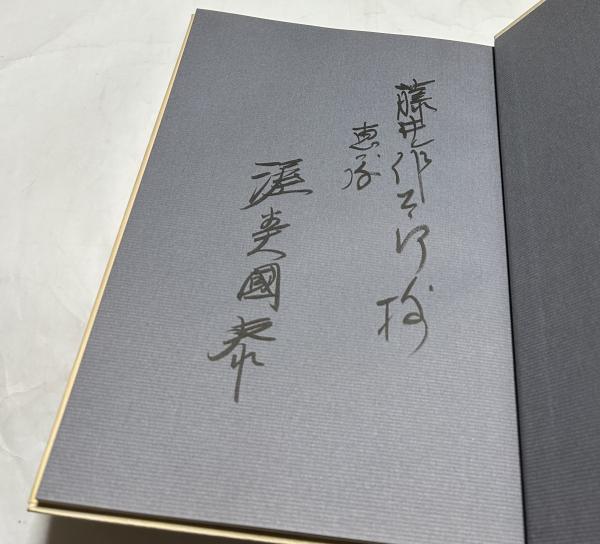 藤井作太郎様
恵存
渥美國泰